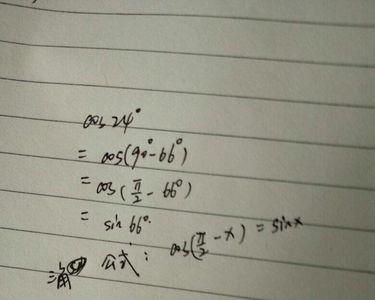 cos 24°
= cos(90°-66°)
= cos(π/2 - 66°)
= sin 66°
公式: cos(π/2 - x) = sin x